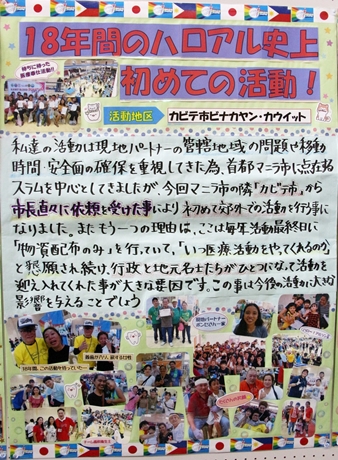 18年間のハロアル史上
初めての活動！
待ちに待った
医療奉仕活動!!
活動地区
カビテ市ビナカヤン・カウィット
私達の活動は現地パートナーの管轄地域の問題や移動
時間・安全面の確保を重視してきた為、首都マニラ市に点在する
スラムを中心としてきましたが、今回マニラ市の隣「カビテ市」から
市長直々に依頼を受けた事により初めて郊外での活動を行う事に
なりました。またもう一つの理由は、ここは毎年活動最終日に
「物資配布のみ」を行っていて、「いつ医療活動をやってくれるのか」
と懇願され続け、行政と地元名士たちがひとつになって活動を
迎え入れてくれた事が大きな要因です。この事は今後の活動に大きな
影響を与えることでしょう
18年間、この活動を待っていた…